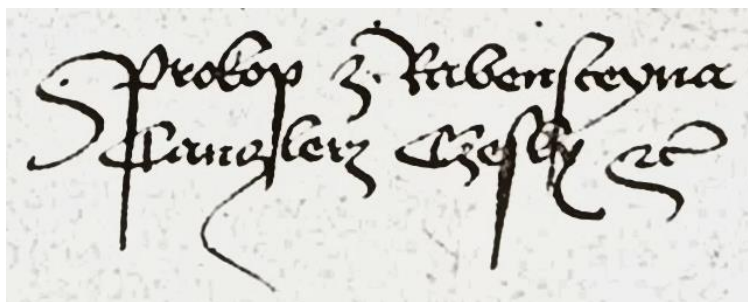 Prokop z Rabensteyna
Canczlerz Czesky etc